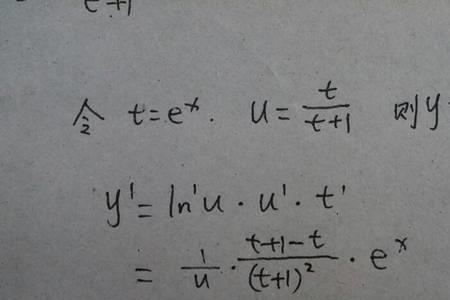 t+1
令 t=eˣ. u= t/(t+1) 则 y
y'= ln'u · u' · t'
= 1/u · (t+1-t)/(t+1)² · eˣ